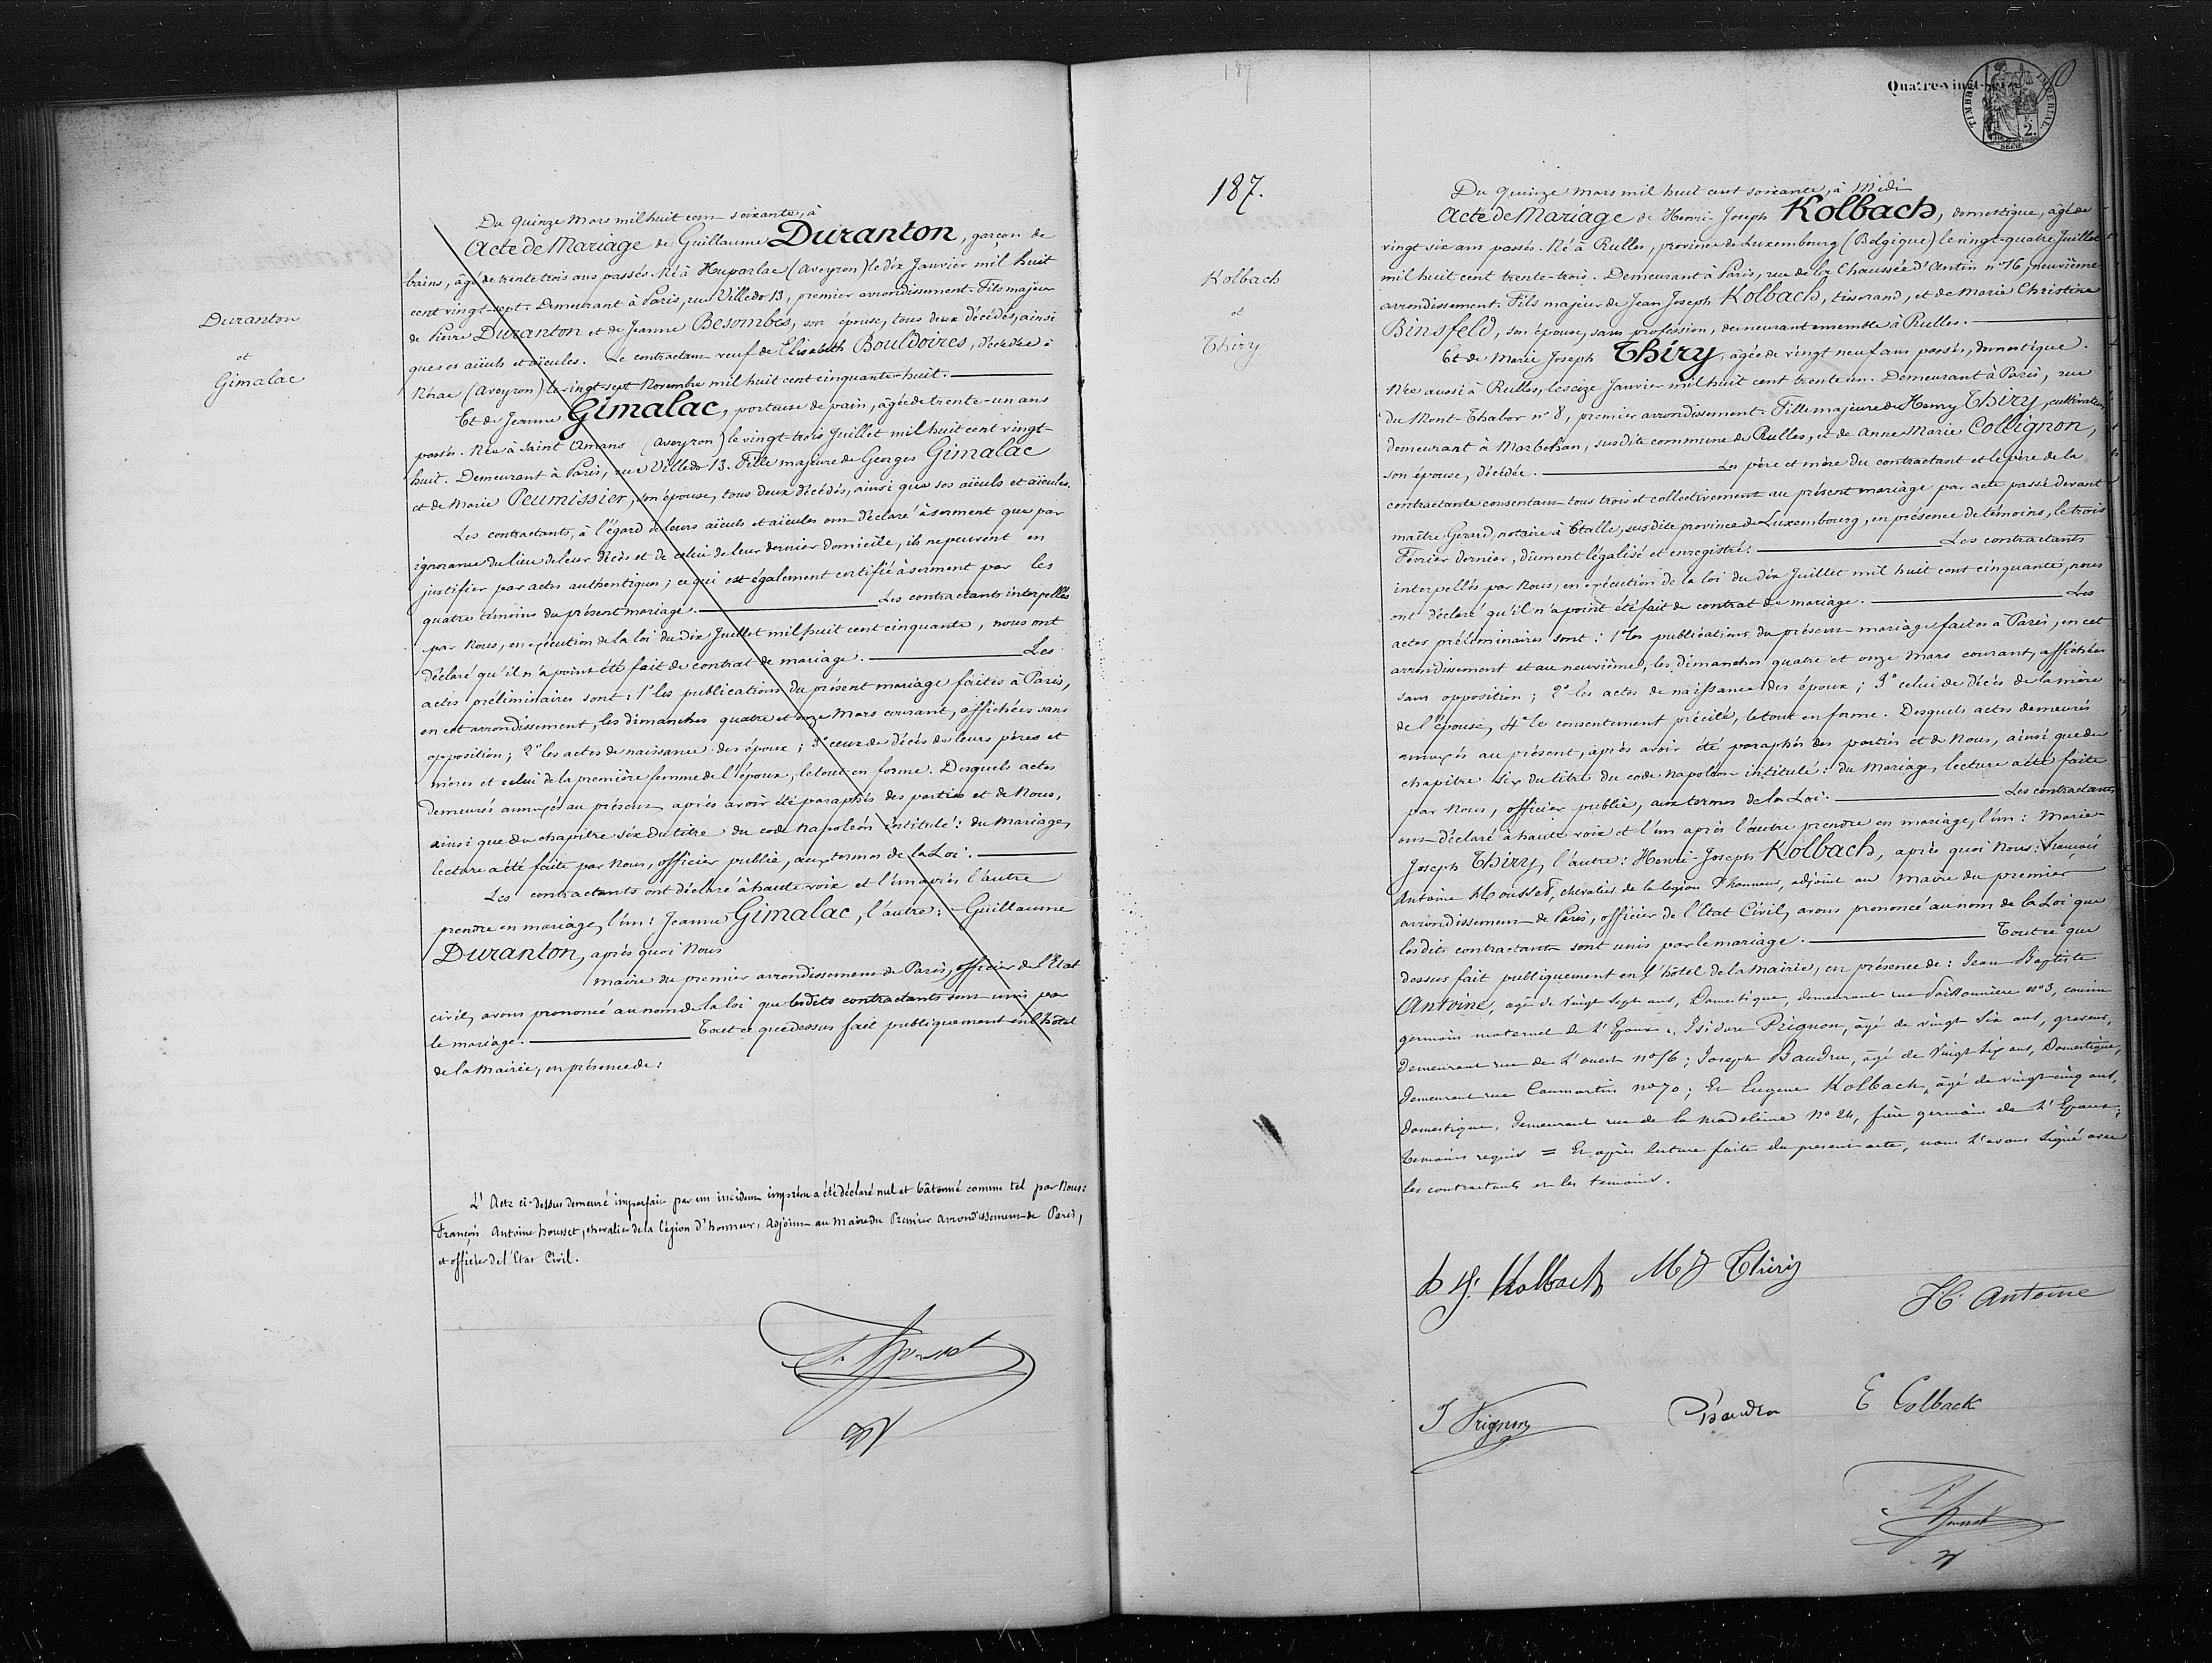 Duranton
et
Gimalac
Du quinze Mars mil huit cent soixante, à
Acte de Mariage de Guillaume Duranton, garçon de
bains, âgé de trente trois ans passés. Né à Huparlac (Aveyron) le dix Janvier mil huit
cent vingt-sept. Demeurant à Paris, rue Villedo 13, premier arrondissement. Fils majeur
de Pierre Duranton et de Jeanne Besombes, son épouse, tous deux décédés, ainsi
que ses aïeuls et aïeules. Le contractant veuf de Elisabeth Bouldoires, décédée à
Nérac (Aveyron) le vingt-sept Novembre mil huit cent cinquante-huit.
Et de Jeanne Gimalac, porteuse de pain, âgée de trente-un ans
passés. Née à Saint Amans (Aveyron) le vingt-trois Juillet mil huit cent vingt-
huit. Demeurant à Paris, rue Villedo 13. Fille majeure de Georges Gimalac
et de Marie Peumissier, son épouse, tous deux décédés, ainsi que ses aïeuls et aïeules.
Les contractants, à l'égard de leurs aïeuls et aïeules ont déclaré à serment que par
ignorance du lieu de leur décès et de celui de leur dernier domicile, ils ne peuvent en
justifier par actes authentiques; ce qui est également certifié à serment par les
quatre témoins du présent mariage. Les contractants interpellés
par Nous, en exécution de la loi du dix Juillet mil huit cent cinquante, nous ont
déclaré qu'il n'a point été fait de contrat de mariage. Les
actes préliminaires sont: 1° les publications du présent mariage faites à Paris,
en cet arrondissement, les dimanches quatre et onze Mars courant, affichées sans
opposition; 2° les actes de naissance des époux; 3° ceux de décès de leurs pères et
mères et celui de la première femme de l'époux, le tout en forme. Desquels actes
demeurés annexés au présent après avoir été paraphés des parties et de Nous,
ainsi que du chapitre six du titre du code Napoléon intitulé: du Mariage,
lecture a été faite par Nous, officier public, aux termes de la Loi.
Les contractants ont déclaré à haute voix et l'un après l'autre
prendre en mariage, l'un: Jeanne Gimalac, l'autre: Guillaume
Duranton, après quoi Nous
maire du premier arrondissement de Paris, officier de l'Etat
civil, avons prononcé au nom de la loi que lesdits contractants sont unis par
le mariage. Tout ce que dessus fait publiquement en l'hôtel
de la Mairie, en présence de:
L'Acte ci-dessus demeuré imparfait par un incident imprévu a été déclaré nul et bâtonné comme tel par Nous:
François Antoine housset, chevalier de la légion d'honneur, Adjoint au Maire du Premier Arrondissement de Paris,
et officier de l'Etat Civil.
187
Quatre-vingt-seize
TIMBRE IMPERIAL
2.
SEINE
187.
Kolbach
et
Thiry
Du quinze Mars mil huit cent soixante, à Midi
Acte de Mariage de Henri-Joseph Kolbach, domestique, âgé de
vingt six ans passés. Né à Rulles, province de Luxembourg (Belgique) le vingt-quatre Juillet
mil huit cent trente-trois. Demeurant à Paris, rue de la Chaussée d'Antin n° 16, neuvième
arrondissement. Fils majeur de Jean Joseph Kolbach, tisserand, et de Marie Christine
Binsfeld, son épouse, sans profession, demeurant ensemble à Rulles.
Et de Marie Joseph Thiry, âgée de vingt neuf ans passés, domestique.
Née aussi à Rulles, le seize Janvier mil huit cent trente un. Demeurant à Paris, rue
du Mont-Thabor n° 8, premier arrondissement. Fille majeure de Henry Thiry, cultivateur,
demeurant à Marbehan, susdite commune de Rulles, et de Anne Marie Collignon,
son épouse, décédée. Les père et mère du contractant et le père de la
contractante consentant tous trois et collectivement au présent mariage par acte passé devant
maître Gerard, notaire à Etalle, susdite province de Luxembourg, en présence de témoins, le trois
Février dernier, dûment légalisé et enregistré. Les contractants
interpellés par Nous, en exécution de la loi du dix Juillet mil huit cent cinquante, nous
ont déclaré qu'il n'a point été fait de contrat de mariage. Les
actes préliminaires sont: 1° les publications du présent mariage faites à Paris, en cet
arrondissement et au neuvième, les dimanches quatre et onze Mars courant, affichées
sans opposition; 2° les actes de naissance des époux; 3° celui de décès de la mère
de l'épouse, 4° le consentement précité, le tout en forme. Desquels actes demeurés
annexés au présent, après avoir été paraphés des parties et de Nous, ainsi que du
chapitre six du titre du code Napoléon intitulé: du Mariage, lecture a été faite
par Nous, officier public, aux termes de la Loi. Les contractants
ont déclaré à haute voix et l'un après l'autre prendre en mariage, l'un: Marie-
Joseph Thiry, l'autre: Henri-Joseph Kolbach, après quoi Nous: François
Antoine Housset, chevalier de la légion d'honneur, adjoint au Maire du premier
arrondissement de Paris, officier de l'Etat Civil, avons prononcé au nom de la Loi que
lesdits contractants sont unis par le mariage. Tout ce que
dessus fait publiquement en l'hôtel de la Mairie, en présence de: Jean Baptiste
Antoine, agé de vingt sept ans, Domestique, demeurant rue Poissonnière n° 3, cousin
germain maternel de l'Epoux; Isidore Prignon, âgé de vingt six ans, graveur,
demeurant rue de l'ouest n° 56; Joseph Baudru, âgé de vingt six ans, Domestique,
demeurant rue Caumartin n° 70; Et Eugene Kolbach, âgé de vingt cinq ans,
domestique, demeurant rue de la madeleine n° 24, frère germain de l'Epoux;
temoins requis = Et après lecture faite du present acte, nous l'avons signé avec
les contractants et les temoins.
h J. Kolbach M J Thiry
J.B. Antoine
I Prignon Baudru E Colback